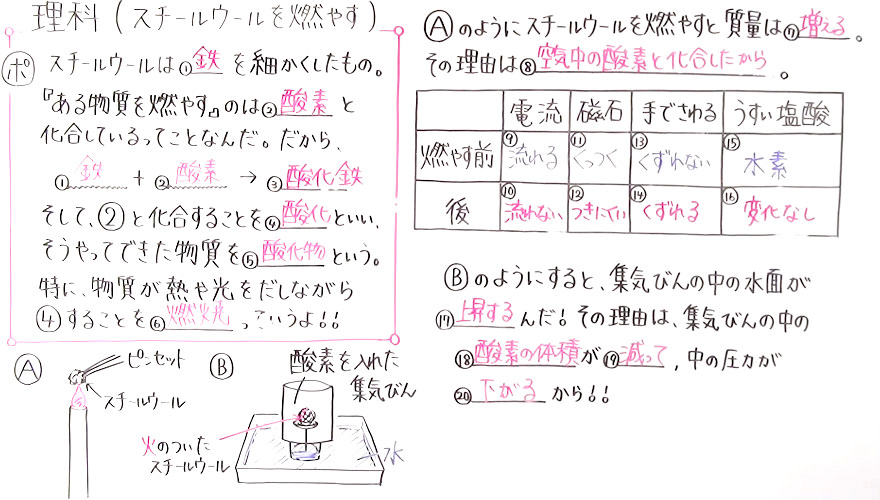 理科(スチールウールを燃やす)
ポ スチールウールは①鉄を細かくしたもの。
『ある物質を燃やす』のは②酸素と
化合しているってことなんだ。だから、
①鉄 + ②酸素 → ③酸化鉄
そして、②と化合することを④酸化といい、
そうやってできた物質を⑤酸化物という。
特に、物質が熱や光をだしながら
④することを⑥燃焼っていうよ!!
Ⓐ
ピンセット
スチールウール
Ⓑ
酸素を入れた
集気びん
火のついた
スチールウール
水
Ⓐのようにスチールウールを燃やすと質量は⑦増える。
その理由は⑧空気中の酸素と化合したから。
電流 磁石 手でさわる うすい塩酸
燃やす前 ⑨流れる ⑪くっつく ⑬くずれない ⑮水素
後 ⑩流れない ⑫つきにくい ⑭くずれる ⑯変化なし
Ⓑのようにすると、集気びんの中の水面が
⑰上昇するんだ!その理由は、集気びんの中の
⑱酸素の体積が⑲減って,中の圧力が
⑳下がるから!!